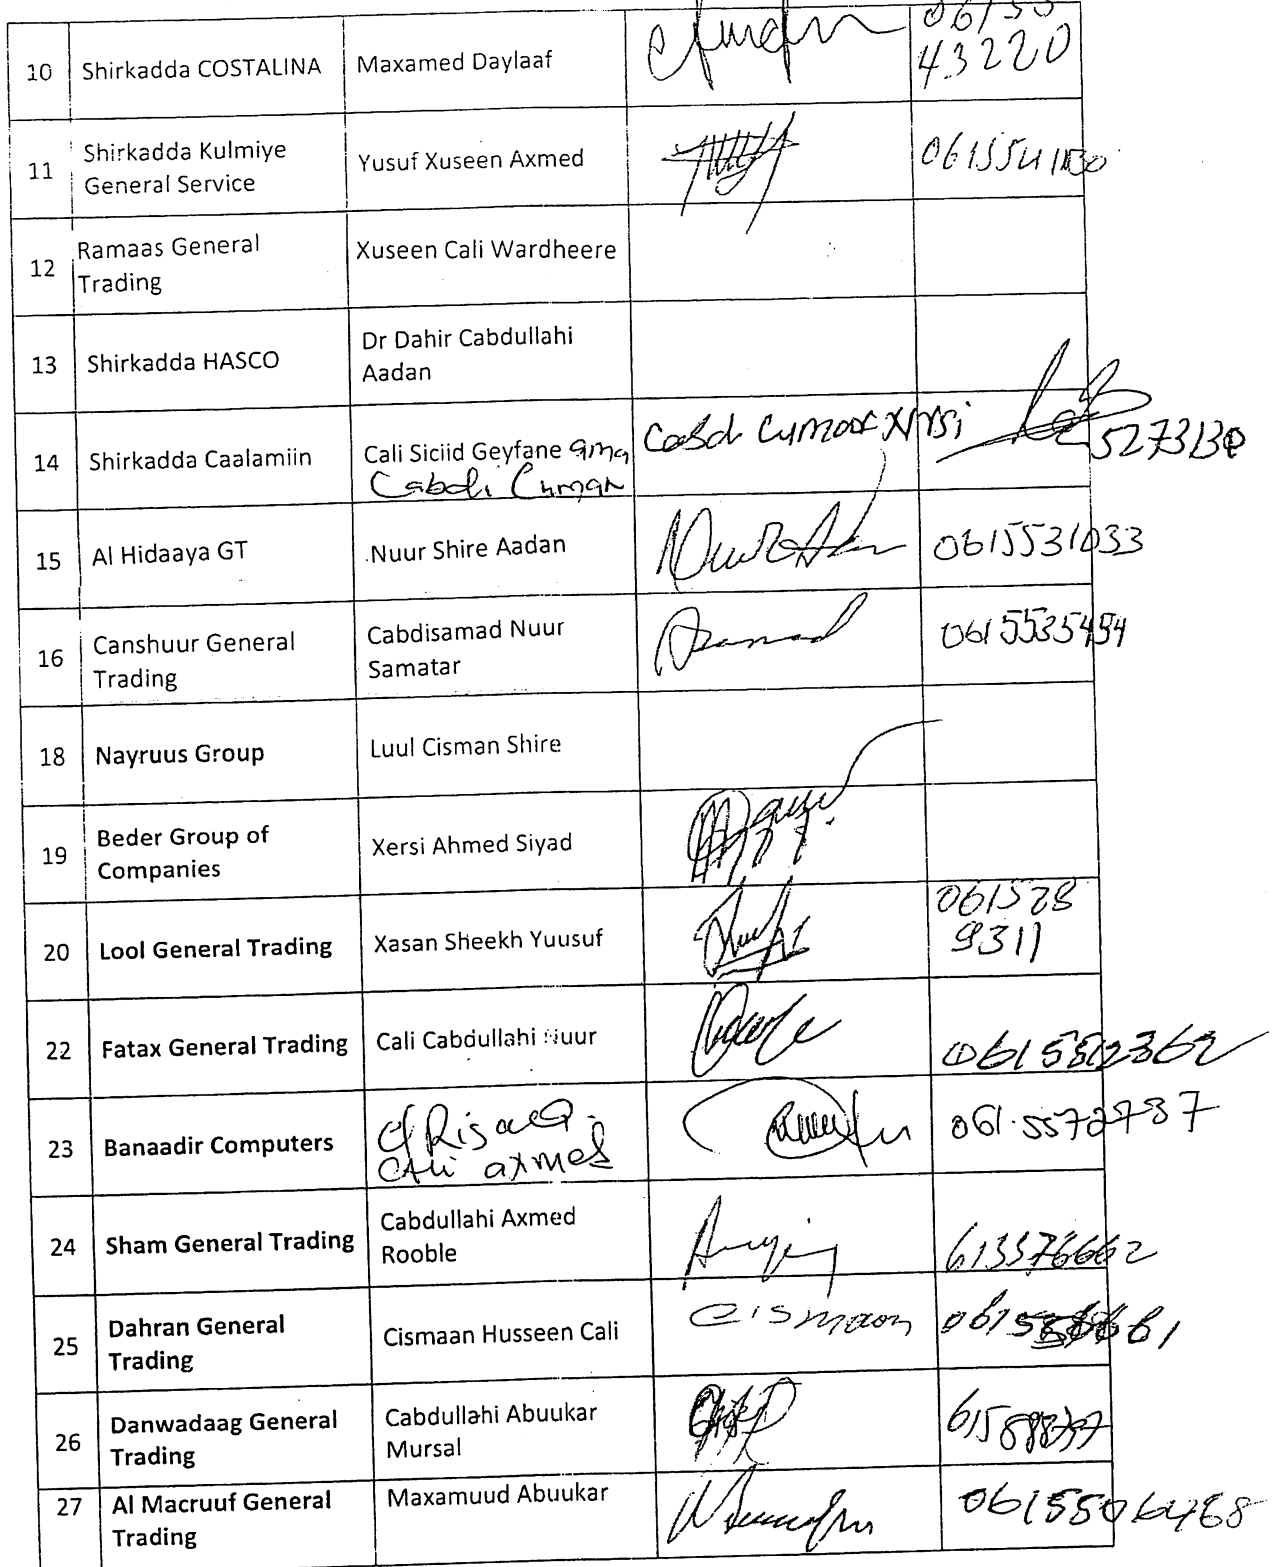 10 Shirkadda COSTALINA Maxamed Daylaaf
43220
11 Shirkadda Kulmiye
General Service
Yusuf Xuseen Axmed
12 Ramaas General
Trading
Xuseen Cali Wardheere
13 Shirkadda HASCO
Dr Dahir Cabdullahi
Aadan
14 Shirkadda Caalamiin
Cali Siciid Geyfane ama
Cabdi Cumar
5273130
15 Al Hidaaya GT Nuur Shire Aadan 0615531033
16 Canshuur General
Trading
Cabdisamad Nuur
Samatar
0615535454
18 Nayruus Group Luul Cisman Shire
19 Beder Group of
Companies
Xersi Ahmed Siyad
20 Lool General Trading Xasan Sheekh Yuusuf
061528
9311
22 Fatax General Trading Cali Cabdullahi Nuur
23 Banaadir Computers
Cali axmed
061.5572787
24 Sham General Trading
Cabdullahi Axmed
Rooble
613376662
25 Dahran General
Trading
Cismaan Husseen Cali
Cismaan
26 Danwadaag General
Trading
Cabdullahi Abuukar
Mursal
27 Al Macruuf General
Trading
Maxamuud Abuukar
0615506468